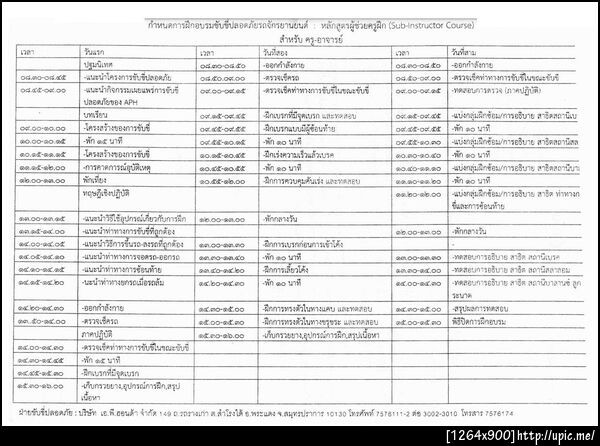 กำหนดการฝึกอบรมขับขี่ปลอดภัยรถจักรยานยนต์ : หลักสูตรผู้ช่วยครูฝึก (Sub-Instructor Course)
สำหรับ ครู-อาจารย์
เวลา วันแรก เวลา วันที่สอง เวลา วันที่สาม
ปฐมนิเทศ ๐๘.๓๐-๐๘.๕๐ -ออกกำลังกาย ๐๘.๓๐-๐๘.๕๐ -ออกกำลังกาย
๐๘.๓๐-๐๘.๔๕ -แนะนำโครงการขับขี่ปลอดภัย ๐๘.๕๐-๐๙.๐๐ -ตรวจเช็ครถ ๐๘.๕๐-๐๙.๐๐ -ตรวจเช็คท่าทางการขับขี่ในขณะขับขี่
๐๘.๔๕-๐๙.๐๐ -แนะนำกิจกรรมเผยแพร่การขับขี่ ๐๙.๐๐-๐๙.๑๕ -ตรวจเช็คท่าทางการขับขี่ในขณะขับขี่ ๐๙.๐๐-๐๙.๑๕ -ทดสอบการตรวจ (ภาคปฏิบัติ)
ปลอดภัยของ APH
บทเรียน ๐๙.๑๕-๐๙.๔๕ -ฝึกเบรกที่มีจุดเบรก และทดสอบ ๐๙.๑๕-๐๙.๔๕ -แบ่งกลุ่มฝึกซ้อม/การอธิบาย สาธิตสถานีเบ
๐๙.๐๐-๑๐.๐๐ -โครงสร้างของการขับขี่ ๐๙.๔๕-๐๙.๕๕ -ฝึกเบรกแบบมีผู้ซ้อนท้าย ๐๙.๔๕-๐๙.๕๕ -พัก ๑๐ นาที
๑๐.๐๐-๑๐.๑๕ -พัก ๑๕ นาที -พัก ๑๐ นาที -แบ่งกลุ่มฝึกซ้อม/การอธิบาย สาธิต สถานีสล
๑๐.๑๕-๑๑.๑๕ -โครงสร้างของการขับขี่ ๑๐.๑๕-๑๐.๔๕ -ฝึกเร่งความเร็วแล้วเบรค ๑๐.๓๐-๑๐.๔๐ -พัก ๑๐ นาที
๑๑.๑๕-๑๒.๐๐ -การคาดการณ์อุบัติเหตุ ๑๐.๔๕-๑๐.๕๕ -พัก ๑๐ นาที ๑๐.๔๐-๑๑.๑๐ -แบ่งกลุ่มฝึกซ้อม/การอธิบาย สาธิต สถานีบา
๑๒.๐๐-๑๓.๐๐ พักเที่ยง ๑๐.๕๕-๑๒.๐๐ -ฝึกการควบคุมคันเร่ง และทดสอบ ๑๑.๑๐-๑๑.๒๐ -พัก ๑๐ นาที
ทฤษฎีเชิงปฏิบัติ ๑๑.๒๐-๑๒.๐๐ -แบ่งกลุ่มฝึกซ้อม/การอธิบาย สาธิต ท่าทางก
ขี่และการซ้อนท้าย
๑๓.๐๐-๑๓.๑๕ -แนะนำวิธีใช้อุปกรณ์เกี่ยวกับการฝึก ๑๒.๐๐-๑๓.๐๐ -พักกลางวัน
๑๓.๑๕-๑๔.๐๐ -แนะนำท่าทางการขับขี่ที่ถูกต้อง ๑๒.๐๐-๑๓.๐๐ -พักกลางวัน
๑๔.๐๐-๑๔.๐๕ -แนะนำวิธีการขึ้นรถ-ลงรถที่ถูกต้อง ๑๓.๐๐-๑๓.๓๐ -ฝึกการเบรกก่อนการเข้าโค้ง
๑๔.๐๕-๑๔.๑๐ -แนะนำท่าทางการจอดรถ-ออกรถ ๑๓.๓๐-๑๓.๔๐ -พัก ๑๐ นาที ๑๓.๐๐-๑๓.๓๐ -ทดสอบการอธิบาย สาธิต สถานีเบรค
๑๔.๑๐-๑๔.๑๕ -แนะนำท่าทางการซ้อนท้าย ๑๓.๔๐-๑๔.๒๐ -ฝึกการเลี้ยวโค้ง ๑๓.๓๐-๑๔.๐๐ -ทดสอบการอธิบาย สาธิต สถานีสลาลอม
๑๔.๑๕-๑๔.๒๐ -แนะนำท่าทางยกรถเมื่อรถล้ม ๑๔.๒๐-๑๔.๓๐ -พัก ๑๐ นาที ๑๔.๐๐-๑๔.๓๐ -ทดสอบการอธิบาย สาธิต สถานีบาลานซ์ ลูก
ระนาด
๑๔.๒๐-๑๔.๓๐ -ออกกำลังกาย ๑๔.๓๐-๑๕.๐๐ -ฝึกการทรงตัวในทางแคบ และทดสอบ ๑๔.๓๐-๑๕.๐๐ -สรุปผลการทดสอบ
๑๓.๕๐-๑๔.๐๐ -ตรวจเช็ครถ ๑๕.๐๐-๑๕.๓๐ -ฝึกการทรงตัวในทางขรุขระ และทดสอบ ๑๕.๐๐-๑๕.๓๐ พิธีปิดการฝึกอบรม
ภาคปฏิบัติ ๑๕.๓๐-๑๖.๐๐ -เก็บกรวยยาง,อุปกรณ์การฝึก, สรุปเนื้อหา
๑๔.๐๐-๑๔.๓๐ -ตรวจเช็คท่าทางการขับขี่ในขณะขับขี่
๑๔.๓๐-๑๔.๔๕ -พัก ๑๕ นาที
๑๔.๔๕-๑๕.๓๐ -ฝึกเบรกที่มีจุดเบรก
๑๕.๓๐-๑๖.๐๐ -เก็บกรวยยาง,อุปกรณ์การฝึก,สรุป
เนื้อหา
ฝ่ายขับขี่ปลอดภัย : บริษัท เอ.พี.ฮอนด้า จำกัด 149 ถ.รถรางเก่า ต.สำโรงใต้ อ.พระแดง จ.สมุทรปราการ 10130 โทรศัพท์ 7576111-2 ต่อ 3002-3010 โทรสาร 7576174
[1264x900]http://upic.me/